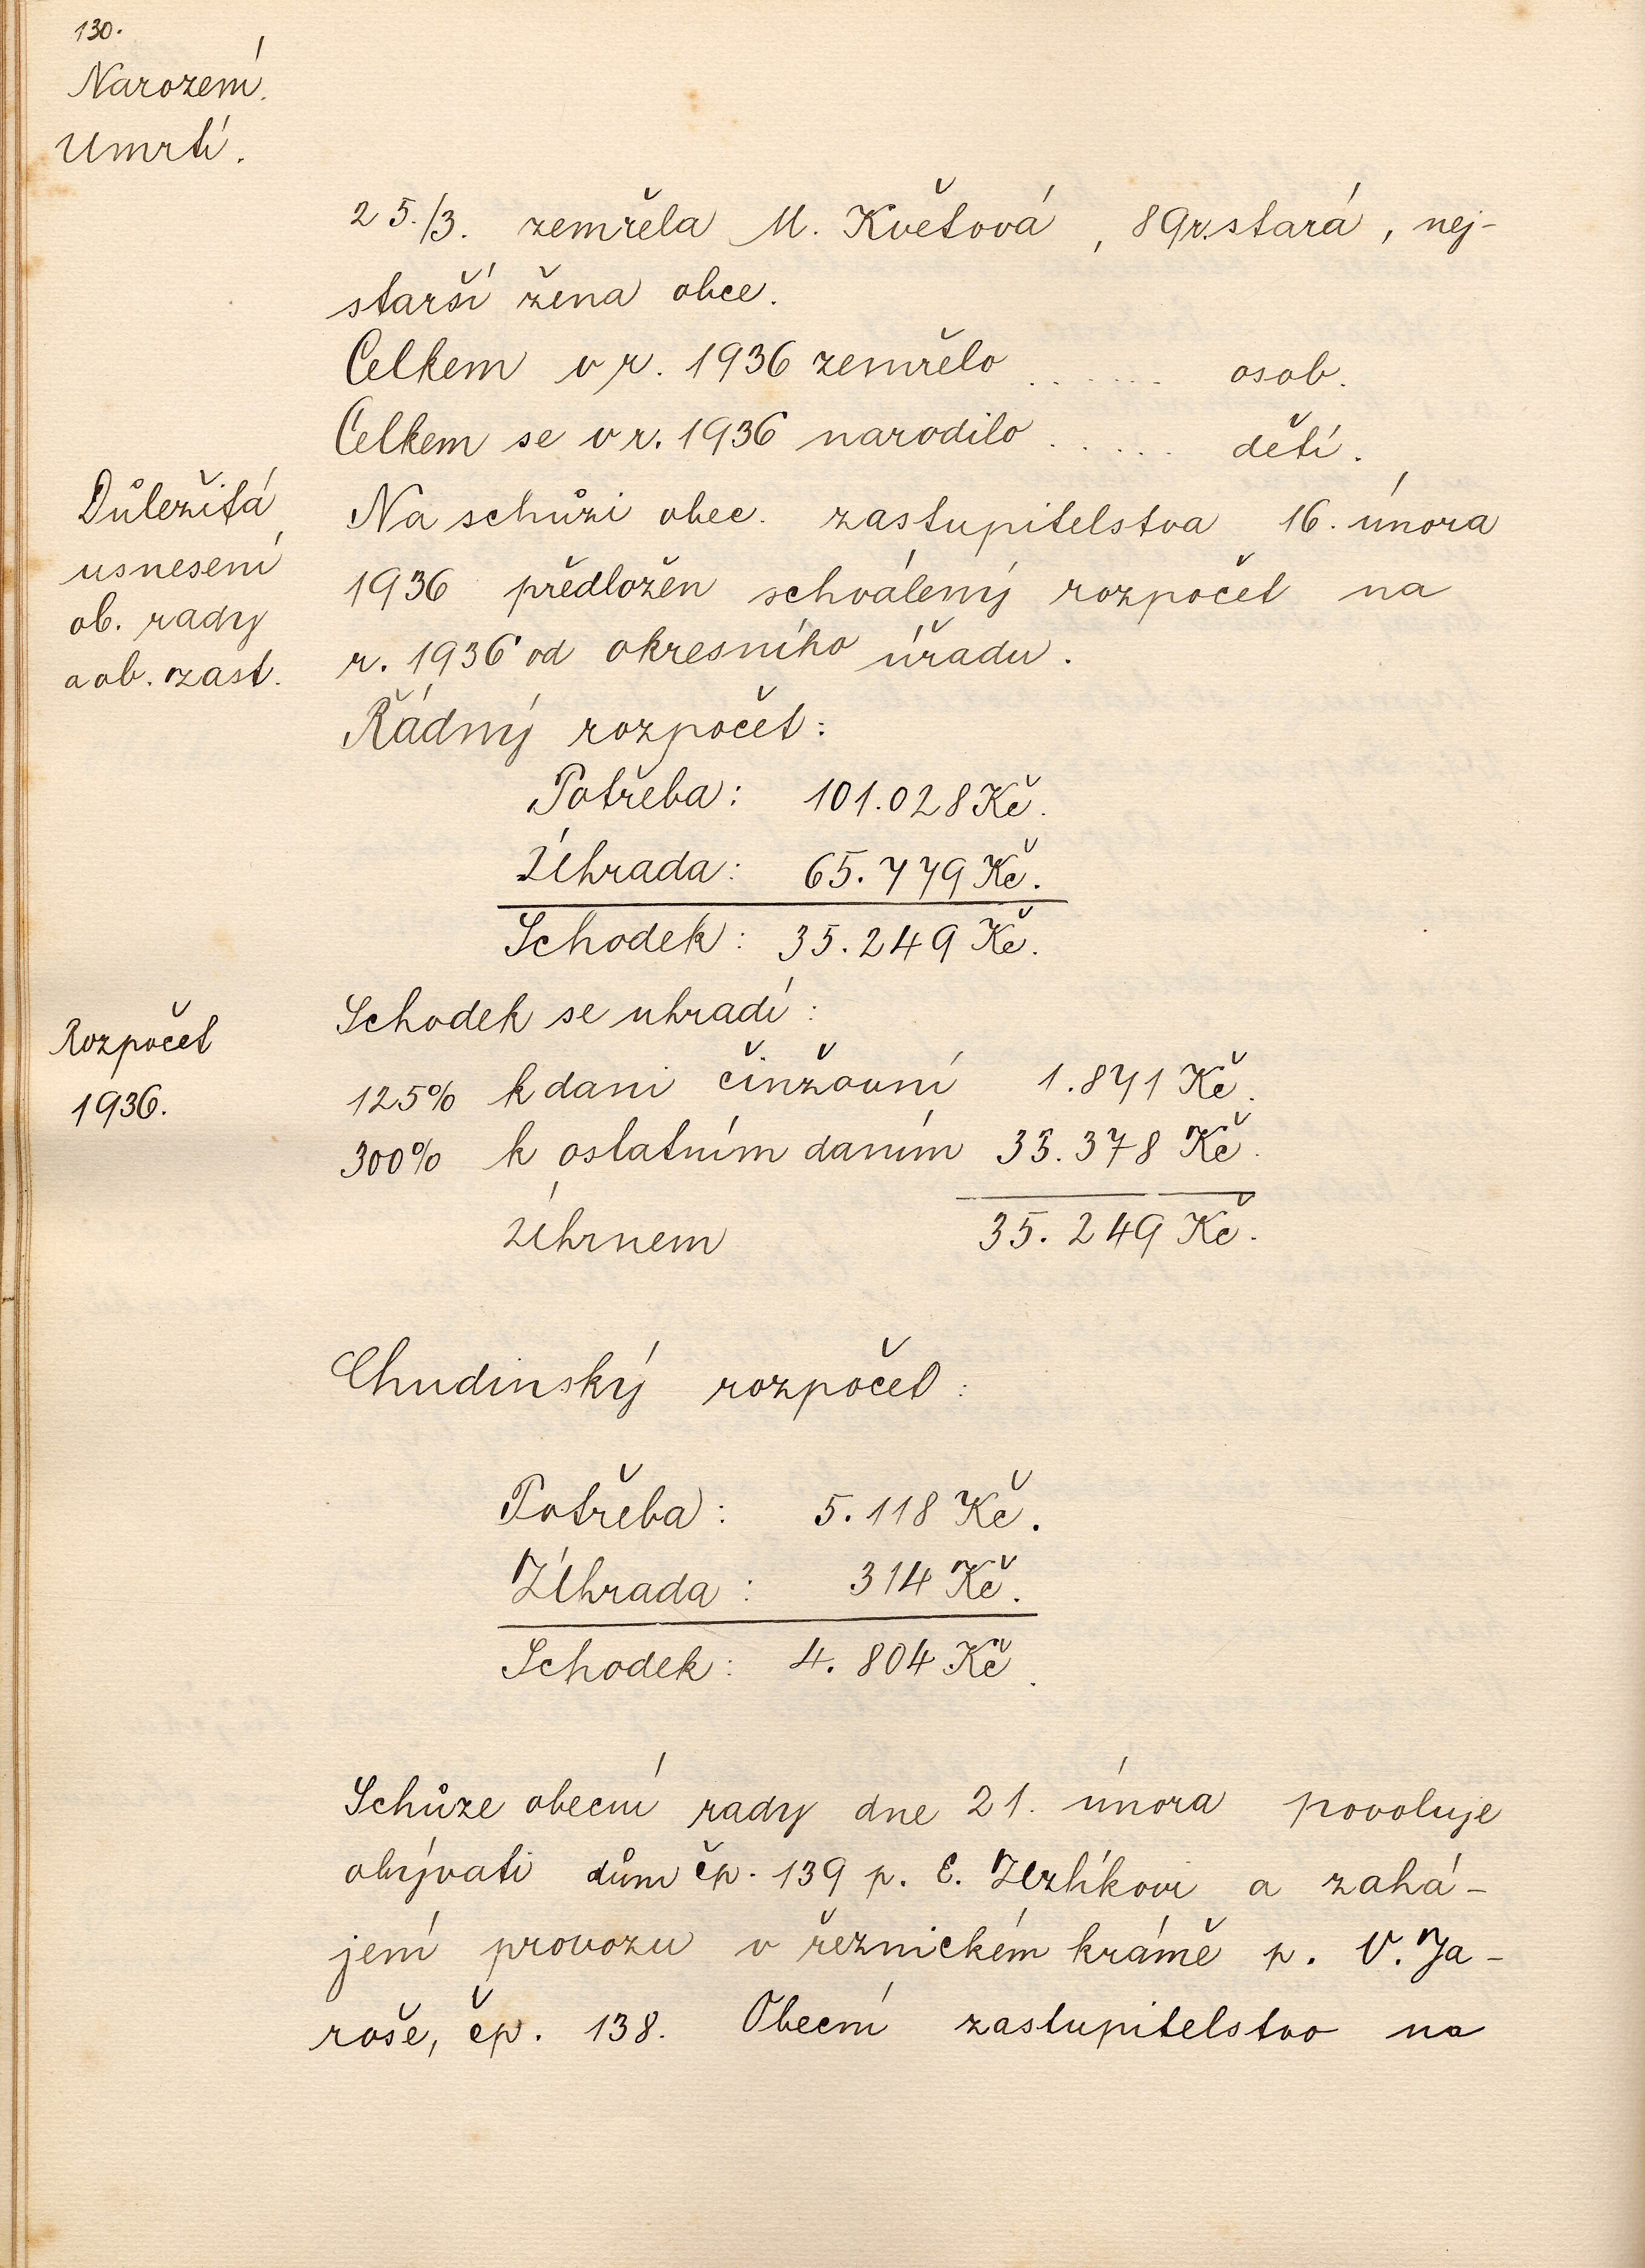 130.
Narození.
Umrtí.
25./3. zemřela M. Květová, 89r. stará, nej-
starší žena obce.
Celkem v r. 1936 zemřelo ...... osob.
Celkem se v r. 1936 narodilo ..... dětí.
Důležitá
usnesení
ob. rady
a ob. zast.
Na schůzi obec. zastupitelstva 16. února
1936 předložen schválený rozpočet na
r. 1936 od okresního úřadu.
Řádný rozpočet:
Potřeba: 101.028 Kč.
Úhrada: 65.779 Kč.
Schodek: 35.249 Kč.
Rozpočet
1936.
Schodek se uhradí:
125% k dani činžovní 1.871 Kč.
300% k ostatním daním 33.378 Kč.
Úhrnem 35.249 Kč.
Chudinský rozpočet:
Potřeba: 5.118 Kč.
Úhrada: 314 Kč.
Schodek: 4.804 Kč.
Schůze obecní rady dne 21. února povoluje
obývati dům čp. 139 p. E. Uzlíkovi a zahá-
jení provozu v řeznickém krámě p. V. Ja-
roše, čp. 138. Obecní zastupitelstvo na